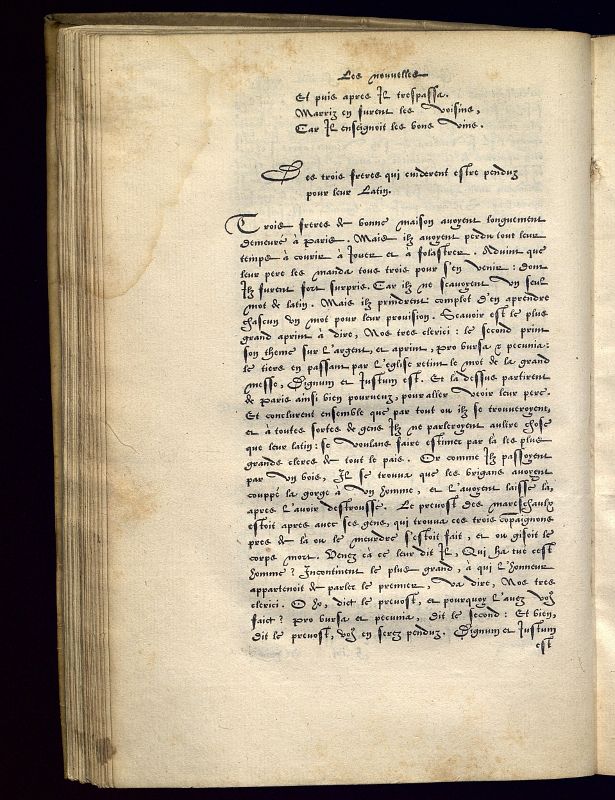 Les nouvelles
Et puis apres Il trespassa.
Marriz en furent les voisins,
Car Il enseignoit les bons vins.
Des trois freres qui cuiderent estre penduz
pour leur Latin.
Trois freres de bonne maison avoyent longuement
demeuré à Paris. Mais ilz avoyent perdu tout leur
temps à courir à Jouer et à folastrer. Advint que
leur pere les manda tous trois pour s'en venir: dont
Ilz furent fort surpris. Car ilz ne scavoyent un seul
mot de latin. Mais ilz prindrent complot d'en aprendre
chascun un mot pour leur provision. Scavoir est le plus
grand aprint à dire, Nos tres clerici: le second print
son theme sur l'argent, et aprint, pro bursa & pecunia:
le tiers en passant par l'eglise retint le mot de la grand
messe, Dignum et Justum est. Et la dessus partirent
de Paris ainsi bien pourveuz, pour aller veoir leur pere.
Et conclurent ensemble que par tout ou ilz se trouveroyent,
et à toutes sortes de gens Ilz ne parleroyent aultre chose
que leur latin: se voulans faire estimer par là les plus
grands clercs de tout le pais. Or comme Ilz passoyent
par un bois, Il se trouva que les brigans avoyent
couppé la gorge à un homme, et l'avoyent laissé là,
apres l'avoir destroussé. Le prevost des mareschaulx
estoit apres avec ses gens, qui trouva ces trois compaignons
pres de là ou le meurdre s'estoit fait, et ou gisoit le
corps mort. Venez cà ce leur dit Il, Qui ha tué cest
homme? Incontinent le plus grand, à qui l'honneur
appartenoit de parler le premier, va dire, Nos tres
clerici. O ho, dict le prevost, et pourquoy l'avez vous
faict? pro bursa et pecunia, dit le second: Et bien,
dit le prevost, vous en serez penduz. Dignum et Justum
est